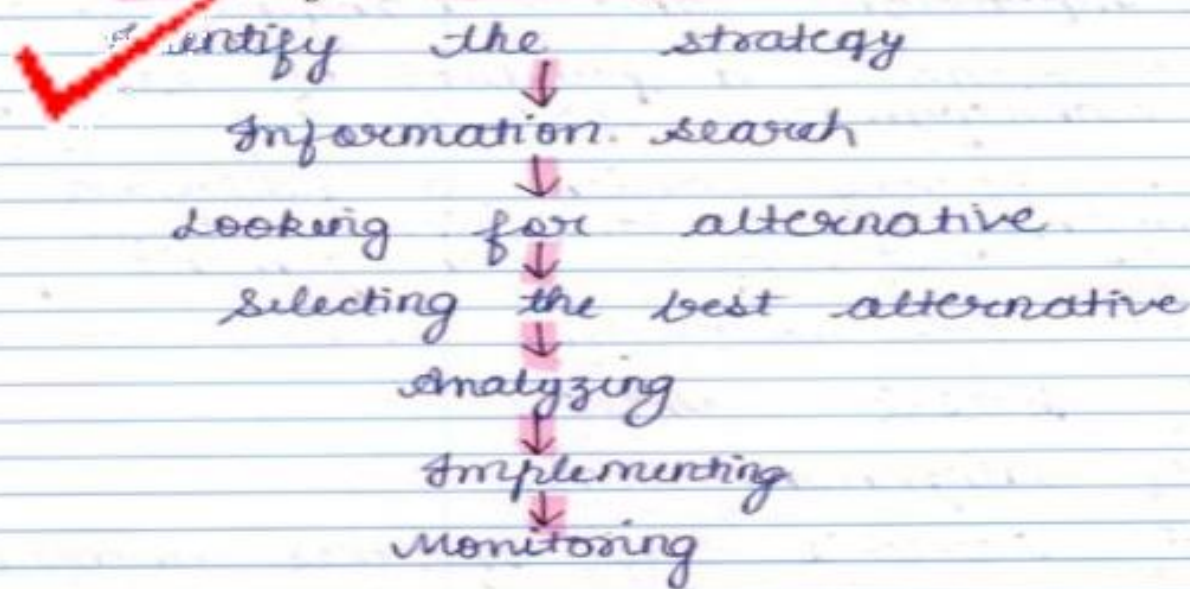 Identify the strategy
↓
Information search
↓
Looking for alternative
↓
Selecting the best alternative
↓
Analyzing
↓
Implementing
↓
Monitoring